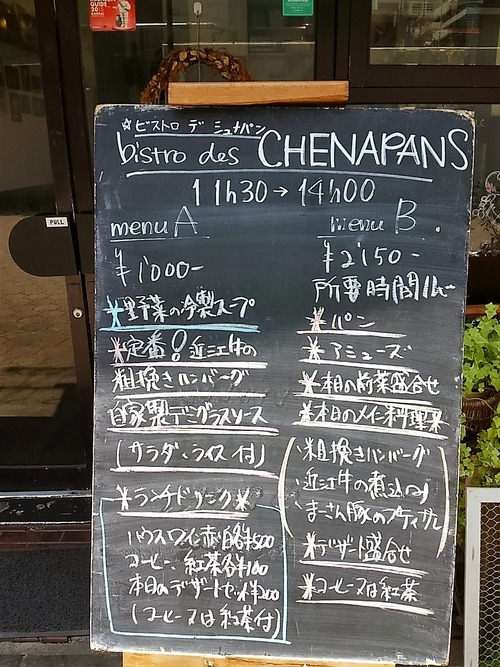 GUIDE
☆ビストロ デ シュナパン
bistro des CHENAPANS
11h30→14h00
PULL
menu A
¥1'000-
*野菜の冷製スープ
*定番!近江牛の
粗挽きハンバーグ
自家製デミグラスソース
(サラダ、ライス付)
*ランチドリンク*
ハウスワイン赤・白各¥500
コーヒー、紅茶各¥100
本日のデザートセット¥200
(コーヒー又は紅茶付)
menu B.
¥2'150-
所要時間
*パン
*アミューズ
*本日の前菜盛合せ
*本日のメイン料理
粗挽きハンバーグ
近江牛の煮込み
*デザート盛合せ
*コーヒー又は紅茶